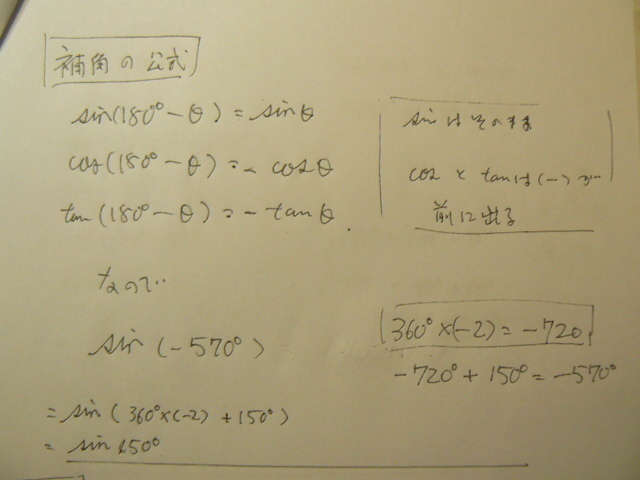 補角の公式
sin(180°-θ)=sinθ
cos(180°-θ)=-cosθ
tan(180°-θ)=-tanθ.
sinはそのまま
cosとtanは(-)が
前に出る
なので
sin(-570°)
360°×(-2)=-720
-720°+150°=-570°
=sin(360°×(-2)+150°)
=sin150°